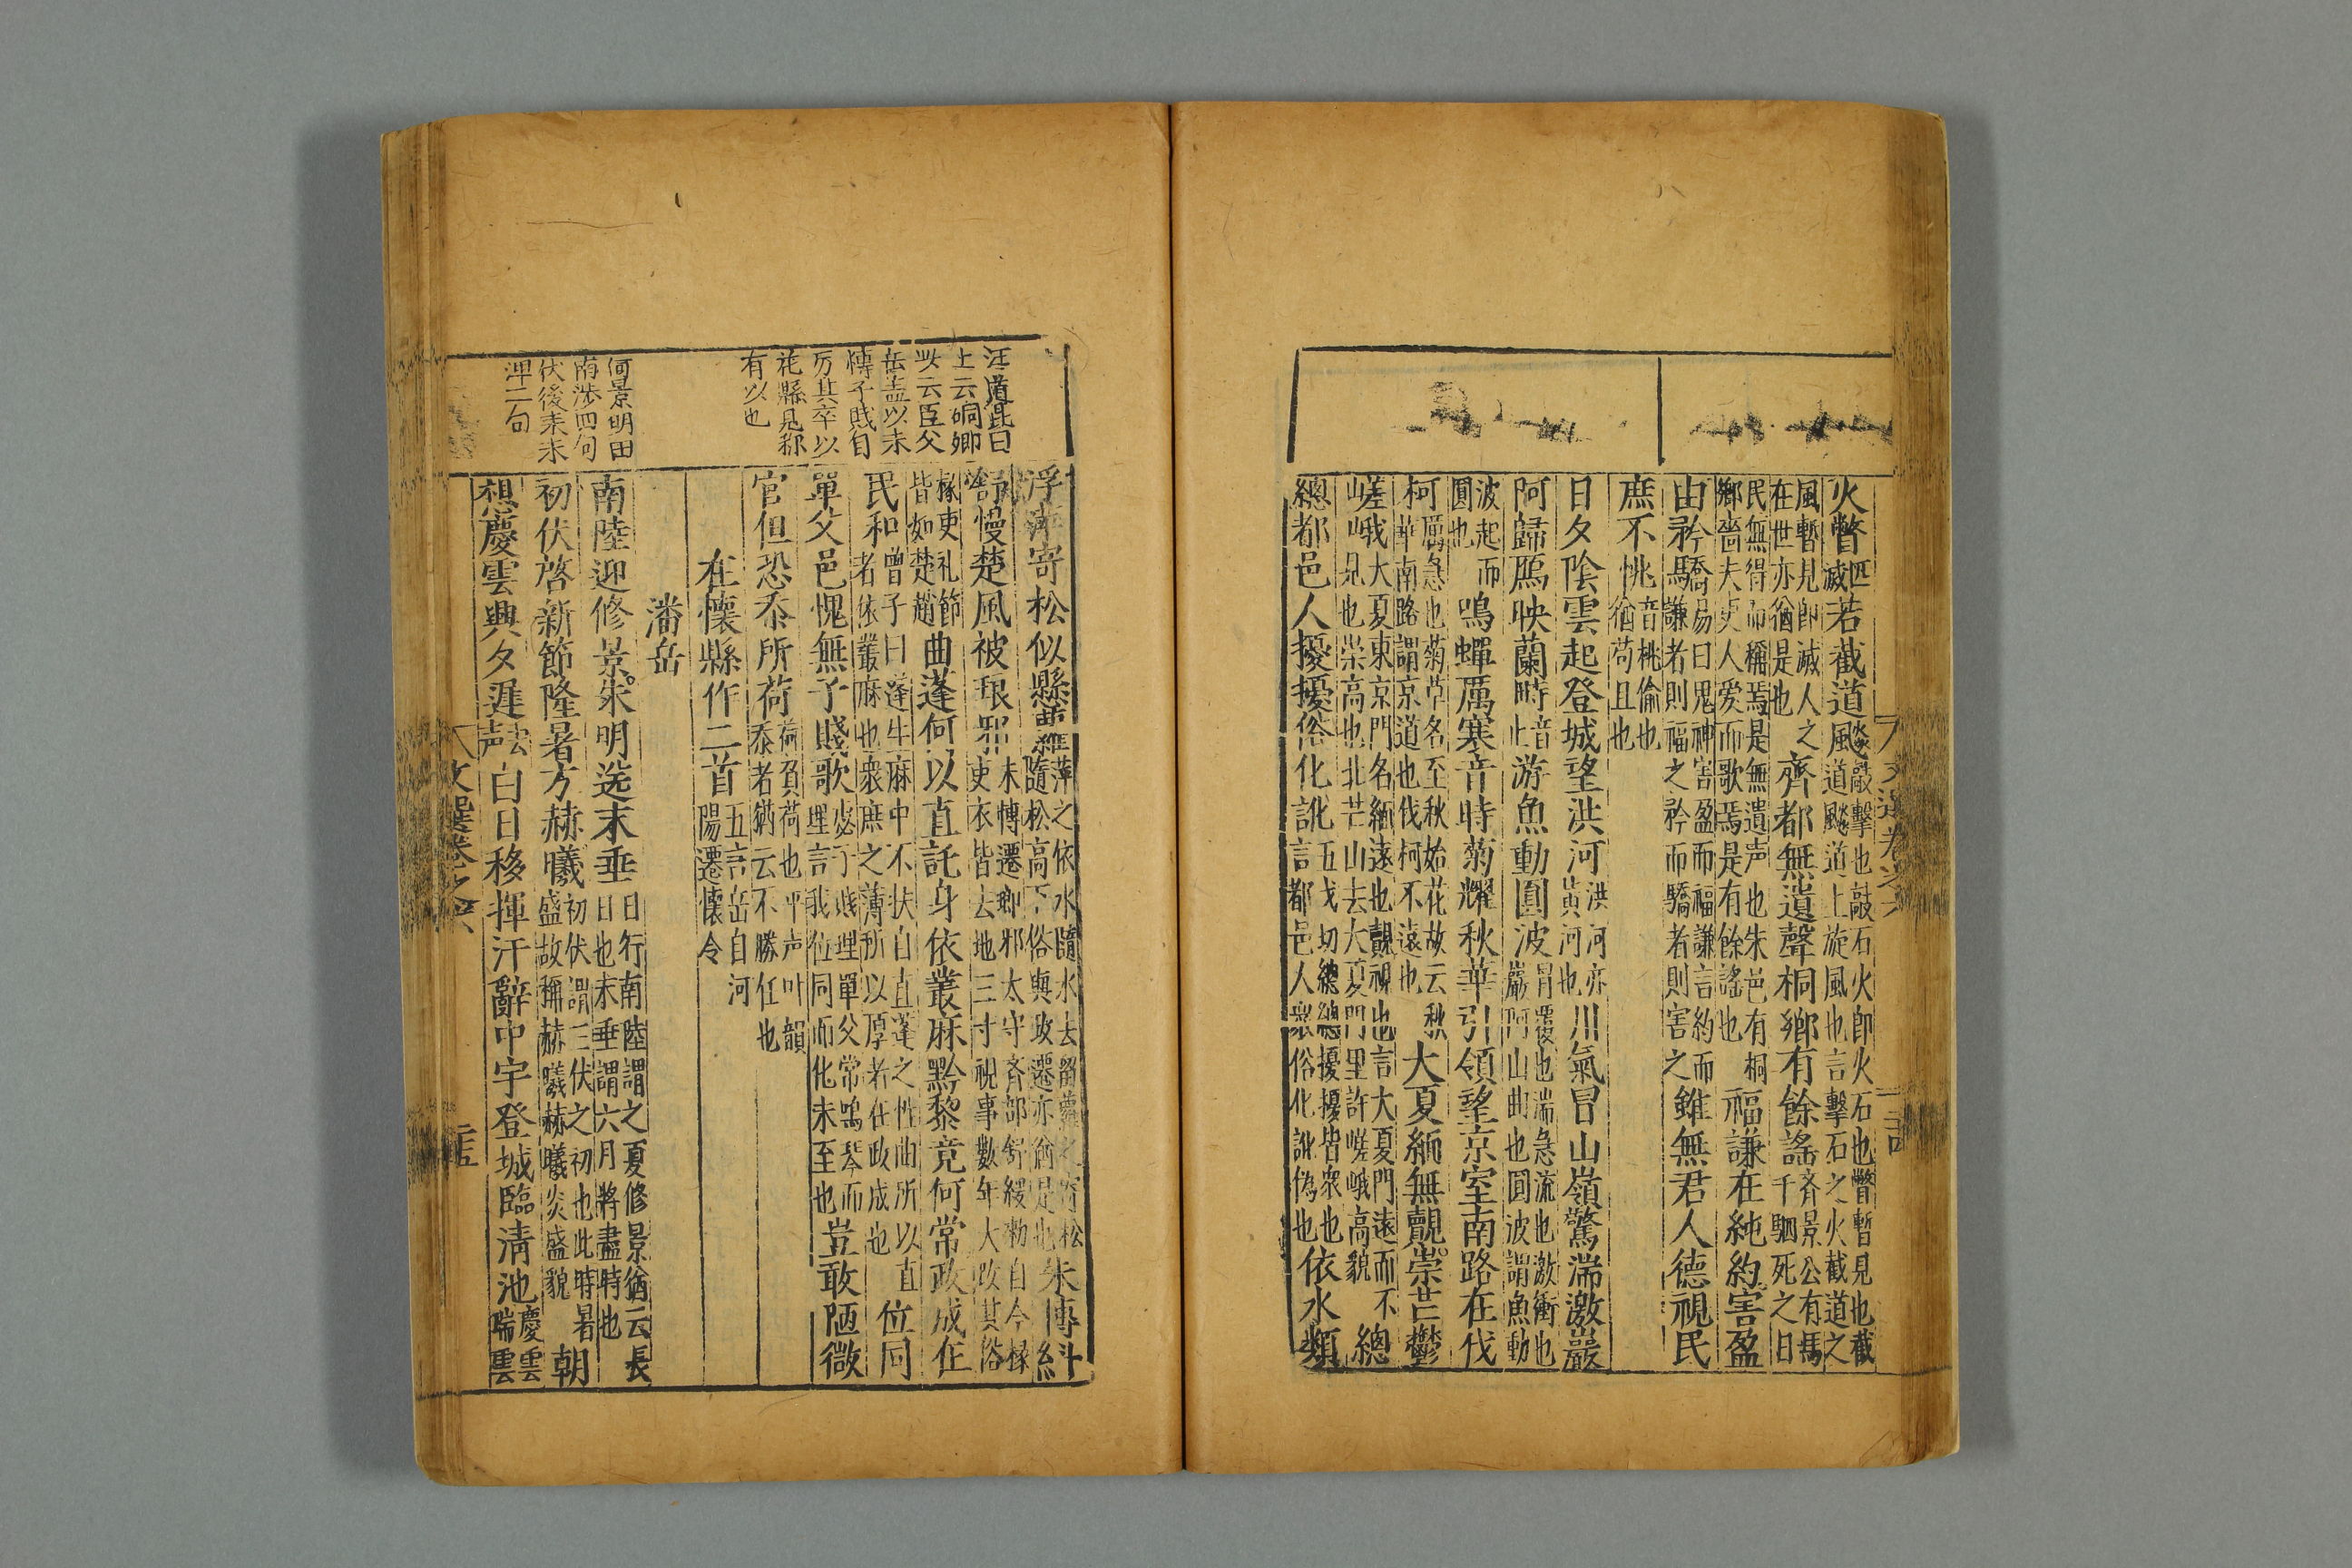 火瞥匹滅若截道飈敲擊也敲石火即火石也瞥暫見也截道飈道上旋風也言擊石之火截道之
風暫見即滅人之在世亦猶是也齊都無遺聲桐鄉有餘謠齊景公有馬千駟死之日
民無得而稱焉是無遺声也朱邑有桐鄉嗇夫吏人爱而歌焉是有餘謠也福謙在純約害盈
由矜驕易曰鬼神害盈而福謙言約而謙者則福之矜而驕者則害之雖無君人德視民
庶不恌音桃偷也猶苟且也
日夕陰雲起登城望洪河洪河亦黄河也川氣冒山嶺驚湍激巖
阿歸鴈映蘭畤音止游魚動圓波冒覆也湍急流也激衝也巖阿山曲也圓波謂魚動
波起而圓也鳴蟬厲寒音時菊耀秋華引領望京室南路在伐
柯厲急也菊草名至秋始花故云秋華南路謂京道也伐柯不遠也大夏緬無覿崇芒鬱
嵯峨大夏東京門名緬遠也覿視也言大夏門遠而不見也崇高也北芒山去大夏門里許嵯峨高貌總
總都邑人擾擾俗化訛五戈切總總擾擾皆衆也言都邑人衆俗化訛偽也依水類
浮萍寄松似懸蘿萍之依水隨水去留蘿之寄松隨松高下俗與政遷亦猶是也朱博糾
舒慢楚風被琅邪朱博遷琅邪太守齐部舒緩勑自今掾吏衣皆去地三寸視事數年大改其俗
掾吏礼節皆如楚趙曲蓬何以直託身依叢麻黔黎竟何常政成在
民和曾子曰蓬生麻中不扶自直蓬之性曲所以直者依叢麻也衆庶之薄所以厚者在政成也位同
單父邑愧無子賤歌宓子賤理單父常鳴琴而理言我位同而化未至也豈敢陋微
官但恐忝所荷荷負荷也平声叶韻忝者猶云不勝任也
在懷縣作二首五言岳自河陽遷懷令
潘岳
南陸迎修景朱明送末垂日行南陸謂之夏修景猶云長日也末垂謂六月將盡時也
初伏啓新節隆暑方赫曦初伏謂三伏之初也此時暑盛故稱赫曦赫曦炎盛貌朝
想慶雲興夕遲去声白日移揮汗辭中宇登城臨清池慶雲瑞雲
汪道昆曰
上云硐卿
此云臣父
岳盖以朱
博子賤自
厉其卒以
花縣見称
有以也
何景明曰
南涉四句
伏後来未
裡二句
文選卷之六
二十四
文選卷之六
二十五